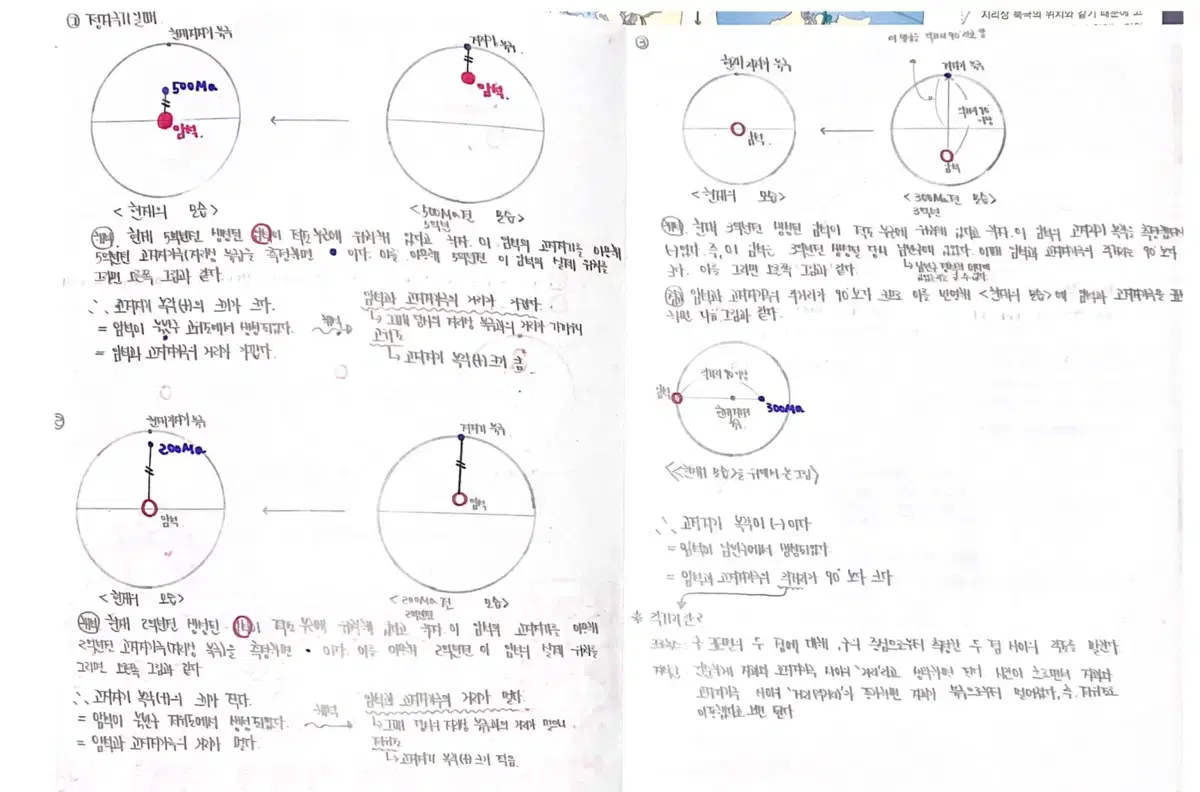 ① 정자극기 일때.
현재지자기 북극
500Ma
암석.
<현재의 모습>
고지자기 북극
암석.
<500Ma전 모습>
5억년전
해석. 현재 5억년전 생성된 암석이 적도 부근에 위치해 있다고 하자. 이 암석의 고지자기를 이용해
5억년전 고지자기극(지리상 북극)을 측정하면 • 이다. 이를 이용해 5억년전 이 암석의 실제 위치를
그리면 오른쪽 그림과 같다.
∴ 고지자기 복각(+)의 크기가 크다.
= 암석이 북반구 고위도에서 생성되었다.
= 암석과 고지자기극의 거리가 가깝다.
해석
암석과 고지자기극의 거리가 가깝다.
↳ 그때 당시의 지리상 북극과의 거리가 가까우니
고위도
↳ 고지자기 복각(+) 크기 큼
②
현재지자기 북극
200Ma
암석
<현재의 모습>
지자기 북극
암석
<200Ma전 모습>
2억년전
해석 현재 2억년전 생성된 암석이 적도 부근에 위치해 있다고 하자. 이 암석의 고지자기를 이용해
2억년전 고지자기극(지리상 북극)을 측정하면 • 이다. 이를 이용해 2억년전 이 암석의 실제 위치를
그리면 오른쪽 그림과 같다
∴ 고지자기 복각(+)의 크기가 작다.
= 암석이 북반구 저위도에서 생성되었다.
= 암석과 고지자기극의 거리가 멀다.
해석
암석과 고지자기극의 거리가 멀다.
↳ 그때 당시의 지리상 북극과의 거리가 멀으니
저위도
↳ 고지자기 복각(+) 크기 작음.
지리상 북극의 위치와 같기 때문에 고
③
현재 지자기 북극
암석
<현재의 모습>
각거리 90° 이상
암석
<300Ma전 모습>
3억년전
해석 현재 3억년전 생성된 암석이 적도 부근에 위치해 있다고 하자. 이 암석의 고지자기 복각을 측정했더니
(-)였다. 즉, 이 암석은 3억년전 생성될 당시 남반구에 있었다. 이때 암석과 고지자기극의 각거리는 90°보다
크다. 이를 그리면 오른쪽 그림과 같다.
암석과 고지자기극의 각거리가 90°보다 크므로 이를 반영해 <현재의 모습>에 암석과 고지자기극을 표현
하면 다음 그림과 같다.
암석
각거리 90 이상
현재지자기
북극
300Ma
<<현재의 모습>을 위에서 본 그림>
∴ 고지자기 복각이 (-)이다
= 암석이 남반구에서 생성되었다
= 암석과 고지자기극의 각거리가 90°보다 크다
※ 각거리란?
구 표면의 두 점에 대해, 구의 중심으로부터 측정한 두 점 사이의 각도를 말한다.
간단하게 지괴와 고지자기극 사이의 '거리'라고 생각하면 된다 시간이 흐르면서 지괴와
고지자기극 사이의 '거리(각거리)'가 증가하면 지괴가 북극으로부터 멀어졌다, 즉, 저위도로
이동했다고 보면 된다